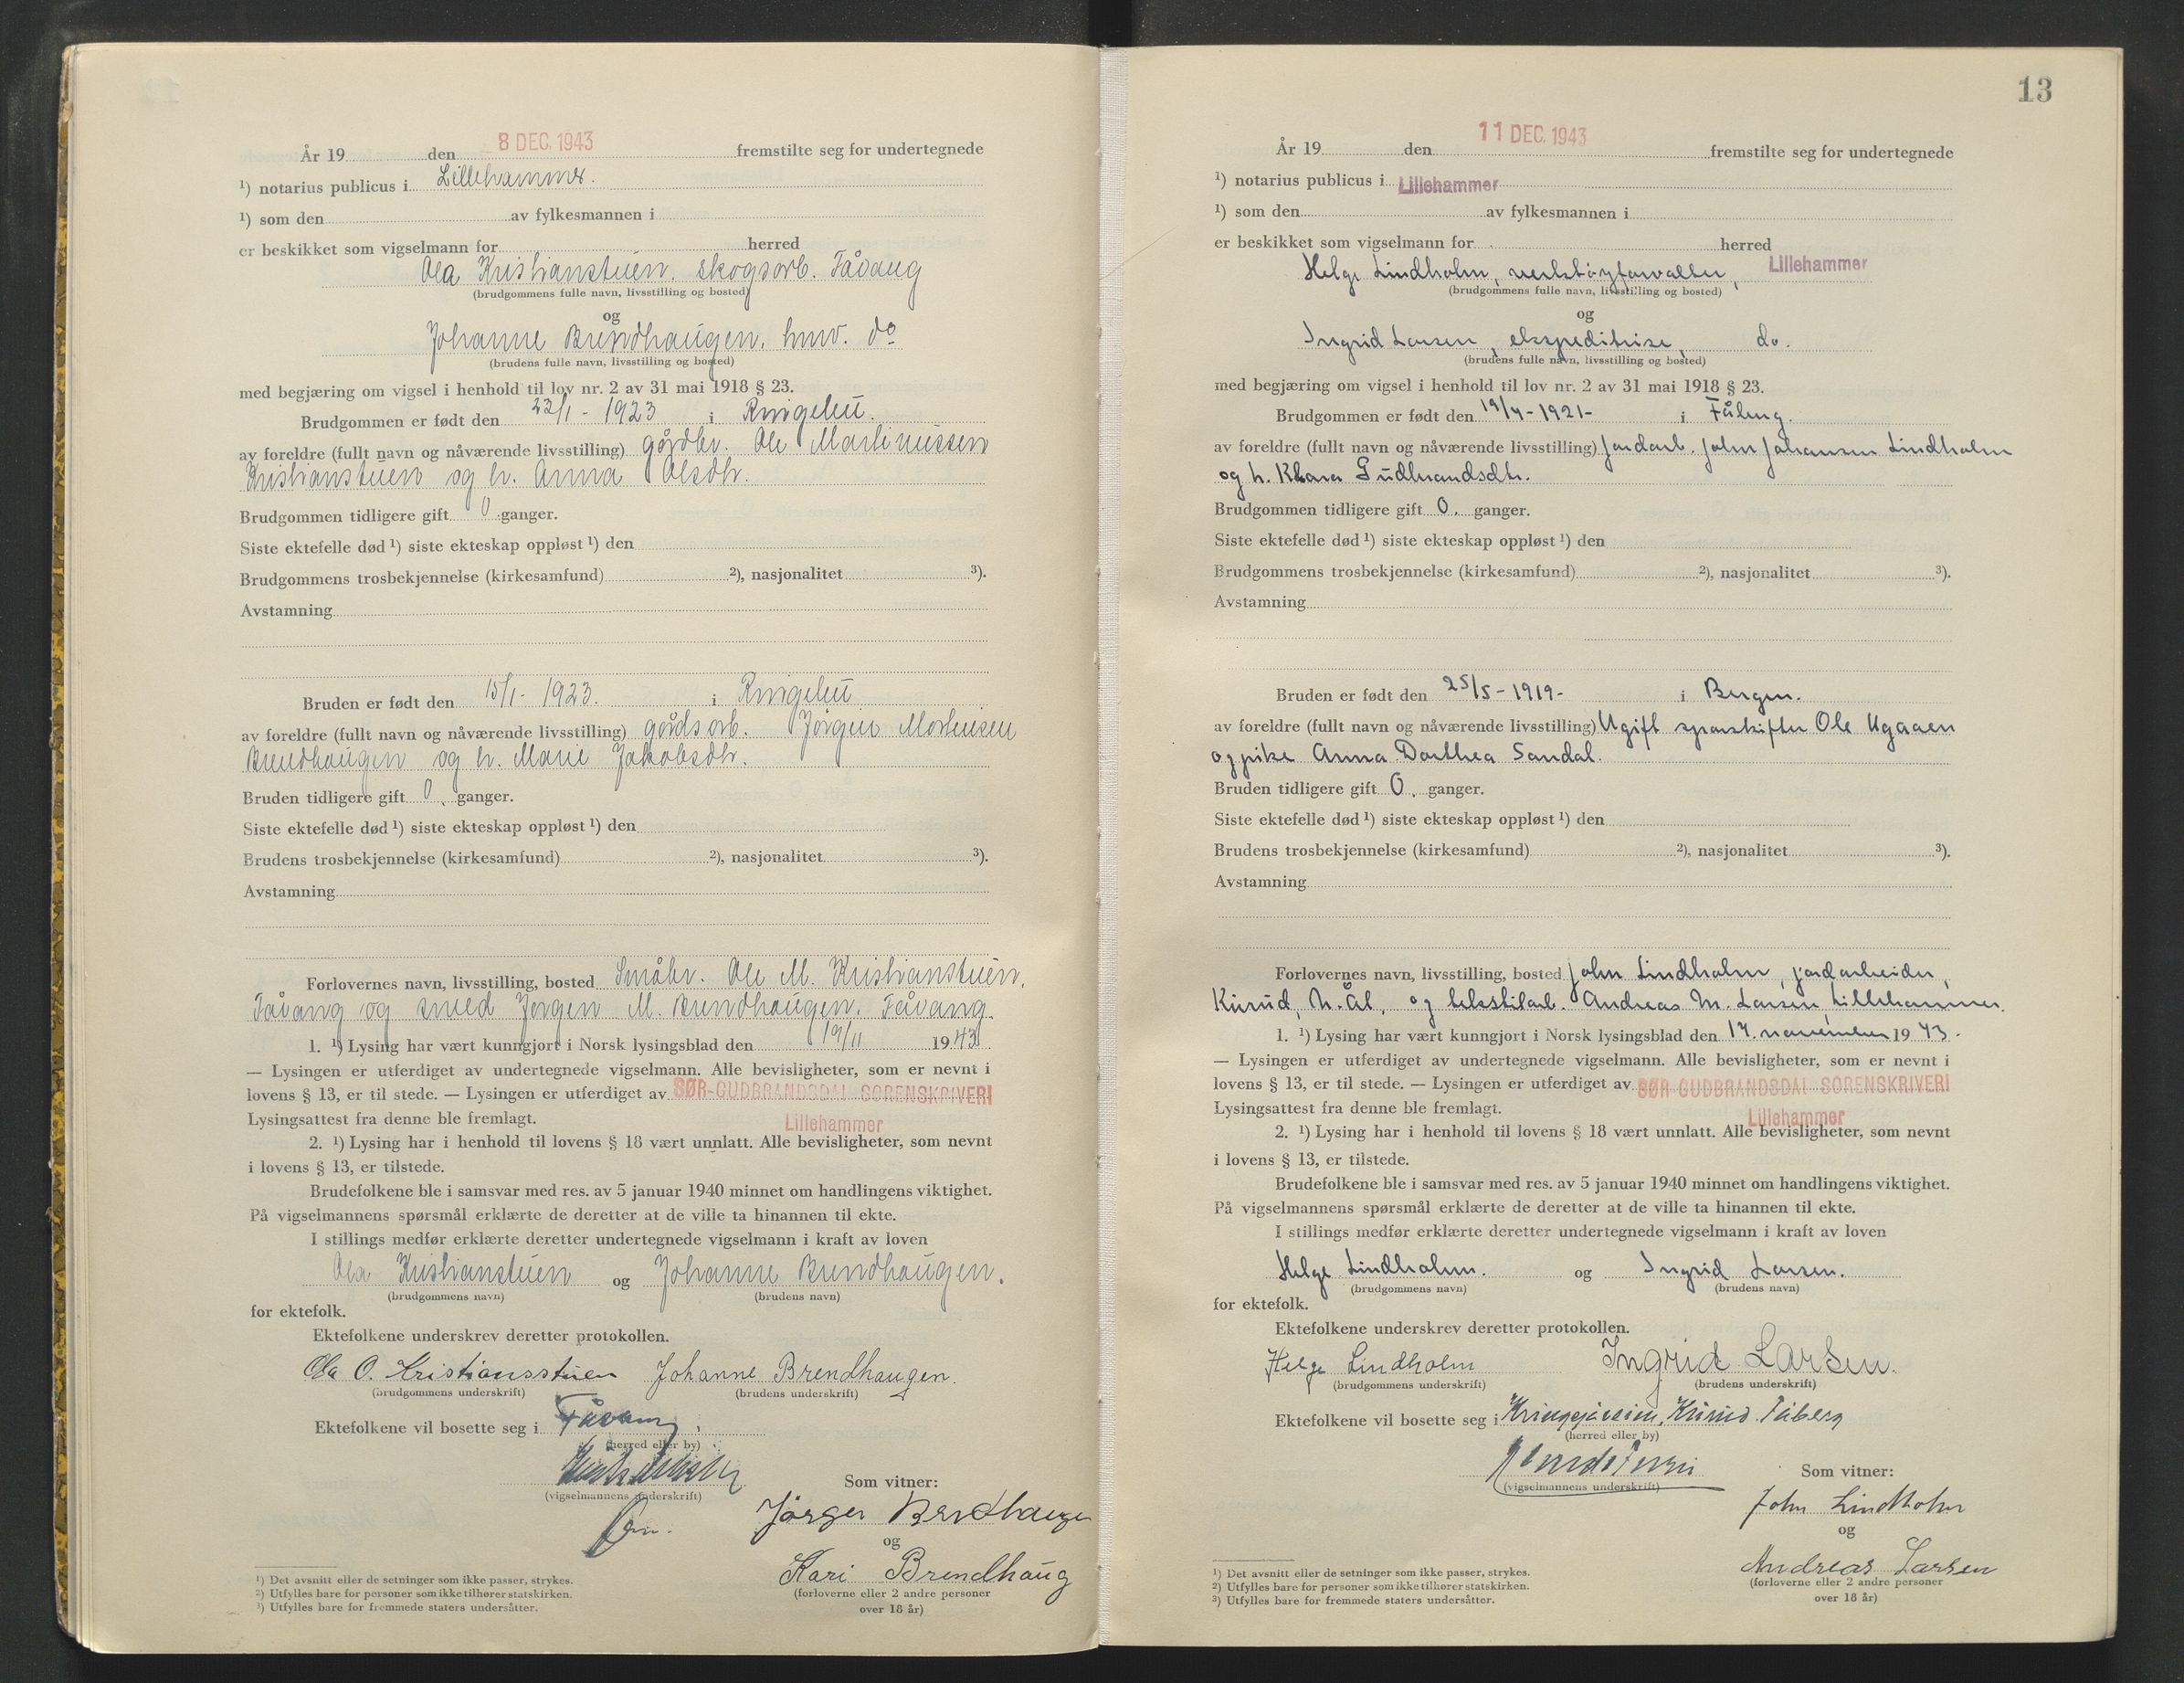 År 19 den 8 DEC. 1943 fremstilte seg for undertegnede
¹) notarius publicus i Lillehammer.
¹) som den av fylkesmannen i
er beskikket som vigselmann for herred
Ola Kristianstuen. skogsarb. Fåvang
(brudgommens fulle navn, livsstilling og bosted)
og
Johanne Brendhaugen. hmv. do
(brudens fulle navn, livsstilling og bosted)
med begjæring om vigsel i henhold til lov nr. 2 av 31 mai 1918 § 23.
Brudgommen er født den 22/1 - 1923 i Ringebu.
av foreldre (fullt navn og nåværende livsstilling) gårdbr. Ole Martinussen
Kristianstuen og h. Anna Olsdtr.
Brudgommen tidligere gift 0 ganger.
Siste ektefelle død ¹) siste ekteskap oppløst ¹) den
Brudgommens trosbekjennelse (kirkesamfund) ²), nasjonalitet ³).
Avstamning
Bruden er født den 15/1 - 1923. i Ringebu
av foreldre (fullt navn og nåværende livsstilling) gårdsarb. Jørgen Mortensen
Brendhaugen og h. Marie Jakobsdtr.
Bruden tidligere gift 0. ganger.
Siste ektefelle død ¹) siste ekteskap oppløst ¹) den
Brudens trosbekjennelse (kirkesamfund) ²), nasjonalitet ³).
Avstamning
Forlovernes navn, livsstilling, bosted Småbr. Ole M. Kristianstuen,
Fåvang og smed Jørgen M. Brendhaugen. Fåvang.
1. ¹) Lysing har vært kunngjort i Norsk lysingsblad den 19/11 1943.
— Lysingen er utferdiget av undertegnede vigselmann. Alle bevisligheter, som er nevnt i
lovens § 13, er til stede. — Lysingen er utferdiget av SØR-GUDBRANDSDAL SORENSKRIVERI
Lysingsattest fra denne ble fremlagt. Lillehammer
2. ¹) Lysing har i henhold til lovens § 18 vært unnlatt. Alle bevisligheter, som nevnt
i lovens § 13, er tilstede.
Brudefolkene ble i samsvar med res. av 5 januar 1940 minnet om handlingens viktighet.
På vigselmannens spørsmål erklærte de deretter at de ville ta hinannen til ekte.
I stillings medfør erklærte deretter undertegnede vigselmann i kraft av loven
Ola Kristianstuen og Johanne Brendhaugen.
(brudgommens navn) (brudens navn)
for ektefolk.
Ektefolkene underskrev deretter protokollen.
Ola O. Kristiansstuen Johanne Brendhaugen.
(brudgommens underskrift) (brudens underskrift)
Ektefolkene vil bosette seg i Fåvang
(herred eller by)
(vigselmannens underskrift)
Som vitner:
Jørgen Brendhaugen
og
Kari Brendhaug
(forloverne eller 2 andre personer
over 18 år)
¹) Det avsnitt eller de setninger som ikke passer, strykes.
²) Utfylles bare for personer som ikke tilhører statskirken.
³) Utfylles bare for fremmede staters undersåtter.
13
År 19 den 11 DEC. 1943 fremstilte seg for undertegnede
¹) notarius publicus i Lillehammer
¹) som den av fylkesmannen i
er beskikket som vigselmann for herred
Helge Lindholm, verktøyforvalter, Lillehammer
(brudgommens fulle navn, livsstilling og bosted)
og
Ingrid Larsen, ekspeditrise, do.
(brudens fulle navn, livsstilling og bosted)
med begjæring om vigsel i henhold til lov nr. 2 av 31 mai 1918 § 23.
Brudgommen er født den 19/4 - 1921 - i Fåberg.
av foreldre (fullt navn og nåværende livsstilling) Jordarb. John Johansen Lindholm
og h. Klara Gudbrandsdtr.
Brudgommen tidligere gift 0. ganger.
Siste ektefelle død ¹) siste ekteskap oppløst ¹) den
Brudgommens trosbekjennelse (kirkesamfund) ²), nasjonalitet ³).
Avstamning
Bruden er født den 25/5 - 1919 - i Bergen.
av foreldre (fullt navn og nåværende livsstilling) Ugift Ole
og pike Anna Dorthea Sandal.
Bruden tidligere gift 0. ganger.
Siste ektefelle død ¹) siste ekteskap oppløst ¹) den
Brudens trosbekjennelse (kirkesamfund) ²), nasjonalitet ³).
Avstamning
Forlovernes navn, livsstilling, bosted John Lindholm, jordarbeider,
Kirud, N. Ål, og tekstilarb. Andreas M. Larsen, Lillehammer.
1. ¹) Lysing har vært kunngjort i Norsk lysingsblad den 17. november 1943.
— Lysingen er utferdiget av undertegnede vigselmann. Alle bevisligheter, som er nevnt i
lovens § 13, er til stede. — Lysingen er utferdiget av SØR-GUDBRANDSDAL SORENSKRIVERI
Lysingsattest fra denne ble fremlagt. Lillehammer
2. ¹) Lysing har i henhold til lovens § 18 vært unnlatt. Alle bevisligheter, som nevnt
i lovens § 13, er tilstede.
Brudefolkene ble i samsvar med res. av 5 januar 1940 minnet om handlingens viktighet.
På vigselmannens spørsmål erklærte de deretter at de ville ta hinannen til ekte.
I stillings medfør erklærte deretter undertegnede vigselmann i kraft av loven
Helge Lindholm. og Ingrid Larsen.
(brudgommens navn) (brudens navn)
for ektefolk.
Ektefolkene underskrev deretter protokollen.
Helge Lindholm Ingrid Larsen.
(brudgommens underskrift) (brudens underskrift)
Ektefolkene vil bosette seg i Fåberg
(herred eller by)
(vigselmannens underskrift)
Som vitner:
John Lindholm
og
Andreas Larsen
(forloverne eller 2 andre personer
over 18 år)
¹) Det avsnitt eller de setninger som ikke passer, strykes.
²) Utfylles bare for personer som ikke tilhører statskirken.
³) Utfylles bare for fremmede staters undersåtter.